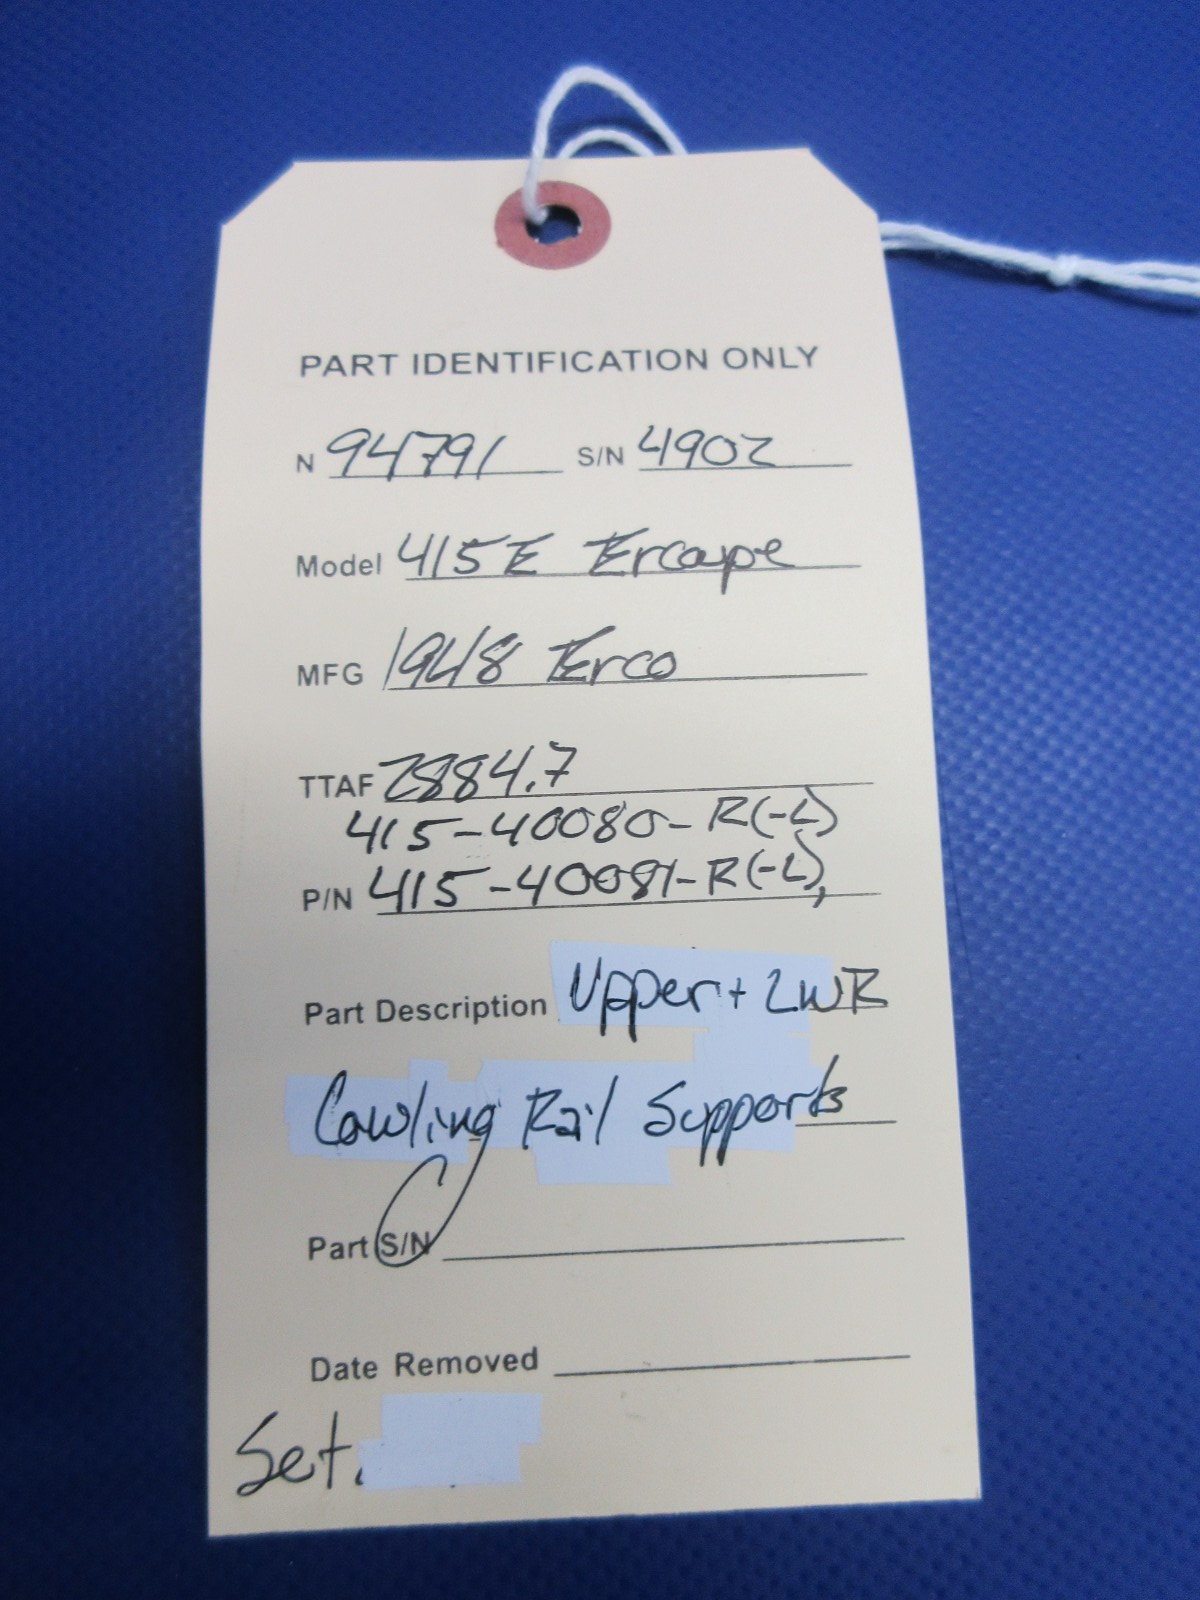 PART IDENTIFICATION ONLY
N 94791 S/N 4902
Model 415E Ercoupe
MFG 1948 Erco
TTAF 2884.7
415-40080-R(-L)
P/N 415-40081-R(-L),
Part Description Upper + LWR
Cowling Rail Supports
Part S/N
Date Removed
Set.